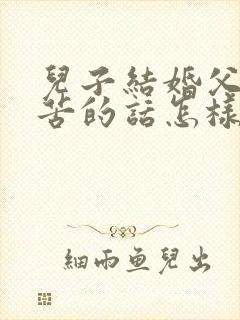 兒子結婚父
苦的話怎樣
細雨魚兒出